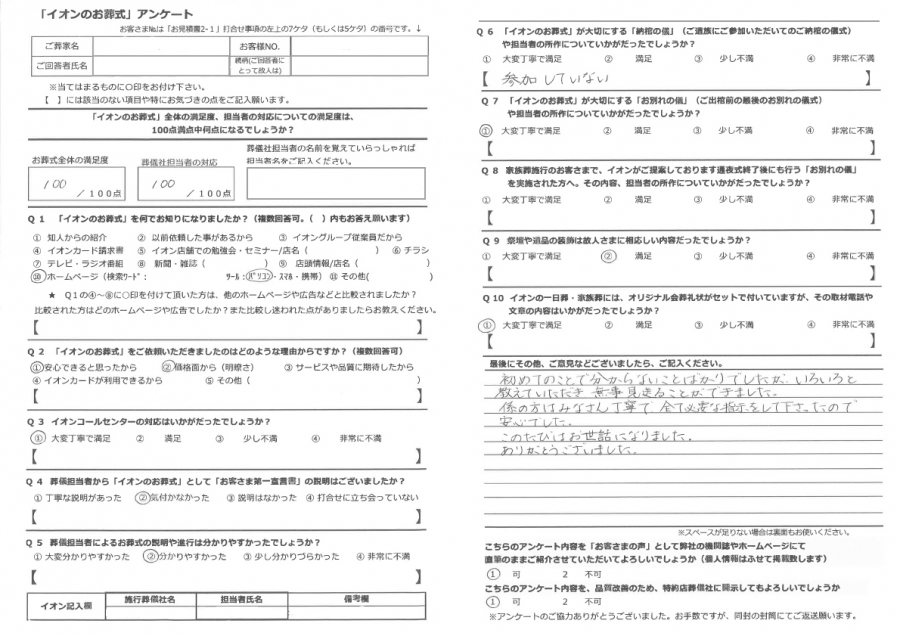 「イオンのお葬式」アンケート
お客さま№は「お見積書2-1」打合せ事項の左上の7ケタ（もしくは5ケタ）の番号です。↓
ご葬家名
お客様NO.
ご回答者氏名
続柄(ご回答者にとって故人は)
※当てはまるものに○印をお付け下さい。
【　】には該当のない項目や特にお気づきの点をご記入願います。
「イオンのお葬式」全体の満足度、担当者の対応についての満足度は、
100点満点中何点になるでしょうか？
お葬式全体の満足度
100 / 100点
葬儀社担当者の対応
100 / 100点
葬儀社担当者の名前を覚えていらっしゃれば
担当者名をご記入ください。
Q 1 「イオンのお葬式」を何でお知りになりましたか？（複数回答可。（　）内もお答え願います）
① 知人からの紹介 ② 以前依頼した事があるから ③ イオングループ従業員だから
④ イオンカード請求書 ⑤ イオン店舗での勉強会・セミナー/店名（　） ⑥ チラシ
⑦ テレビ・ラジオ番組 ⑧ 新聞・雑誌（　） ⑨ 店頭情報/店名（　）
⑩ ホームページ（検索ﾜｰﾄﾞ：　ﾂｰﾙ：パソコン・ｽﾏﾎ・携帯） ⑪ その他(　)
★ Q1の④～⑩に○印を付けて頂いた方は、他のホームページや広告などと比較されましたか？
比較された方はどのホームページや広告でしたか？また比較し迷われた点がありましたらお教えください。
【　】
Q 2 「イオンのお葬式」をご依頼いただきましたのはどのような理由からですか？（複数回答可）
①安心できると思ったから ②価格面から（明瞭さ） ③ サービスや品質に期待したから
④ イオンカードが利用できるから ⑤ その他（　）
【　】
Q 3 イオンコールセンターの対応はいかがだったでしょうか？
① 大変丁寧で満足 ② 満足 ③ 少し不満 ④ 非常に不満
【　】
Q 4 葬儀担当者から「イオンのお葬式」として「お客さま第一宣言書」の説明はございましたか？
① 丁寧な説明があった ②気付かなかった ③ 説明はなかった ④ 打合せに立ち会っていない
【　】
Q 5 葬儀担当者によるお葬式の説明や進行は分かりやすかったでしょうか？
① 大変分かりやすかった ②分かりやすかった ③ 少し分かりづらかった ④ 非常に不満
【　】
イオン記入欄 施行葬儀社名 担当者氏名 備考欄
Q 6 「イオンのお葬式」が大切にする「納棺の儀」（ご遺族にご参加いただいてのご納棺の儀式）
や担当者の所作についていかがだったでしょうか？
① 大変丁寧で満足 ② 満足 ③ 少し不満 ④ 非常に不満
【 参加していない 】
Q 7 「イオンのお葬式」が大切にする「お別れの儀」（ご出棺前の最後のお別れの儀式）
や担当者の所作についていかがだったでしょうか？
① 大変丁寧で満足 ② 満足 ③ 少し不満 ④ 非常に不満
【　】
Q 8 家族葬施行のお客さまで、イオンがご提案しております通夜式終了後にも行う「お別れの儀」
を実施された方へ。その内容、担当者の所作についていかがだったでしょうか？
① 大変丁寧で満足 ② 満足 ③ 少し不満 ④ 非常に不満
【　】
Q 9 祭壇や遺品の装飾は故人さまに相応しい内容だったでしょうか？
① 大変丁寧で満足 ② 満足 ③ 少し不満 ④ 非常に不満
【　】
Q 10 イオンの一日葬・家族葬には、オリジナル会葬礼状がセットで付いていますが、その取材電話や
文章の内容はいかがだったでしょうか？
① 大変丁寧で満足 ② 満足 ③ 少し不満 ④ 非常に不満
【　】
最後にその他、ご意見などございましたら、ご記入ください。
初めてのことで分からないことばかりでしたが、いろいろと
教えていただき 無事見送ることができました。
係の方はみなさん丁寧で、全て必要な指示をして下さったので
安心でした。
このたびはお世話になりました。
ありがとうございました。
※スペースが足りない場合は裏面もお使いください。
こちらのアンケート内容を「お客さまの声」として弊社の機関誌やホームページにて
直筆のままご紹介させていただいてよろしいでしょうか（個人情報はふせて掲載致します）
1 可 2 不可
こちらのアンケート内容を、品質改善のため、特約店葬儀社に開示してもよろしいでしょうか
1 可 2 不可
※アンケートのご協力ありがとうございました。お手数ですが、同封の封筒にてご返送願います。